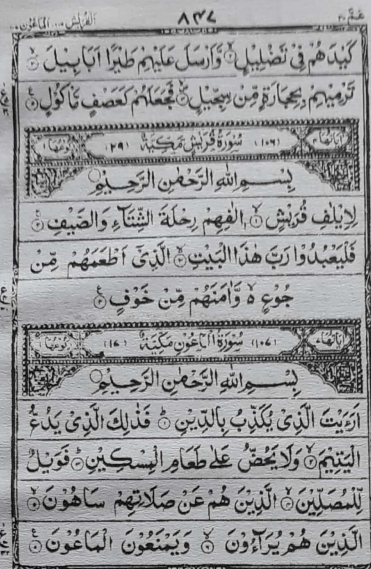 عَمَّ ٣٠ ٨٤٧ الْقُرَيْش ١٠٦ الْمَاعُوْن ١٠٧
كَيْدَهُمْ فِيْ تَضْلِيْلٍ ۙ وَّاَرْسَلَ عَلَيْهِمْ طَيْرًا اَبَابِيْلَ ۙ
تَرْمِيْهِمْ بِحِجَارَةٍ مِّنْ سِجِّيْلٍ ۙ فَجَعَلَهُمْ كَعَصْفٍ مَّاْكُوْلٍ
اٰيَاتُهَا ٤ (١٠٦) سُوْرَةُ قُرَيْشٍ مَكِّيَّةٌ (٢٩) رُكُوْعُهَا
بِسْمِ اللهِ الرَّحْمٰنِ الرَّحِيْمِ
لِاِيْلٰفِ قُرَيْشٍ ۙ اٖلٰفِهِمْ رِحْلَةَ الشِّتَآءِ وَالصَّيْفِ
فَلْيَعْبُدُوْا رَبَّ هٰذَا الْبَيْتِ ۙ الَّذِيْٓ اَطْعَمَهُمْ مِّنْ
جُوْعٍ ۵ وَّاٰمَنَهُمْ مِّنْ خَوْفٍ
اٰيَاتُهَا ٧ (١٠٧) سُوْرَةُ الْمَاعُوْنِ مَكِّيَّةٌ (١٧) رُكُوْعُهَا
بِسْمِ اللهِ الرَّحْمٰنِ الرَّحِيْمِ
اَرَءَيْتَ الَّذِيْ يُكَذِّبُ بِالدِّيْنِ ۙ فَذٰلِكَ الَّذِيْ يَدُعُّ
الْيَتِيْمَ ۙ وَلَا يَحُضُّ عَلٰى طَعَامِ الْمِسْكِيْنِ ۙ فَوَيْلٌ
لِّلْمُصَلِّيْنَ ۙ الَّذِيْنَ هُمْ عَنْ صَلَاتِهِمْ سَاهُوْنَ ۙ
الَّذِيْنَ هُمْ يُرَآءُوْنَ ۙ وَيَمْنَعُوْنَ الْمَاعُوْنَ